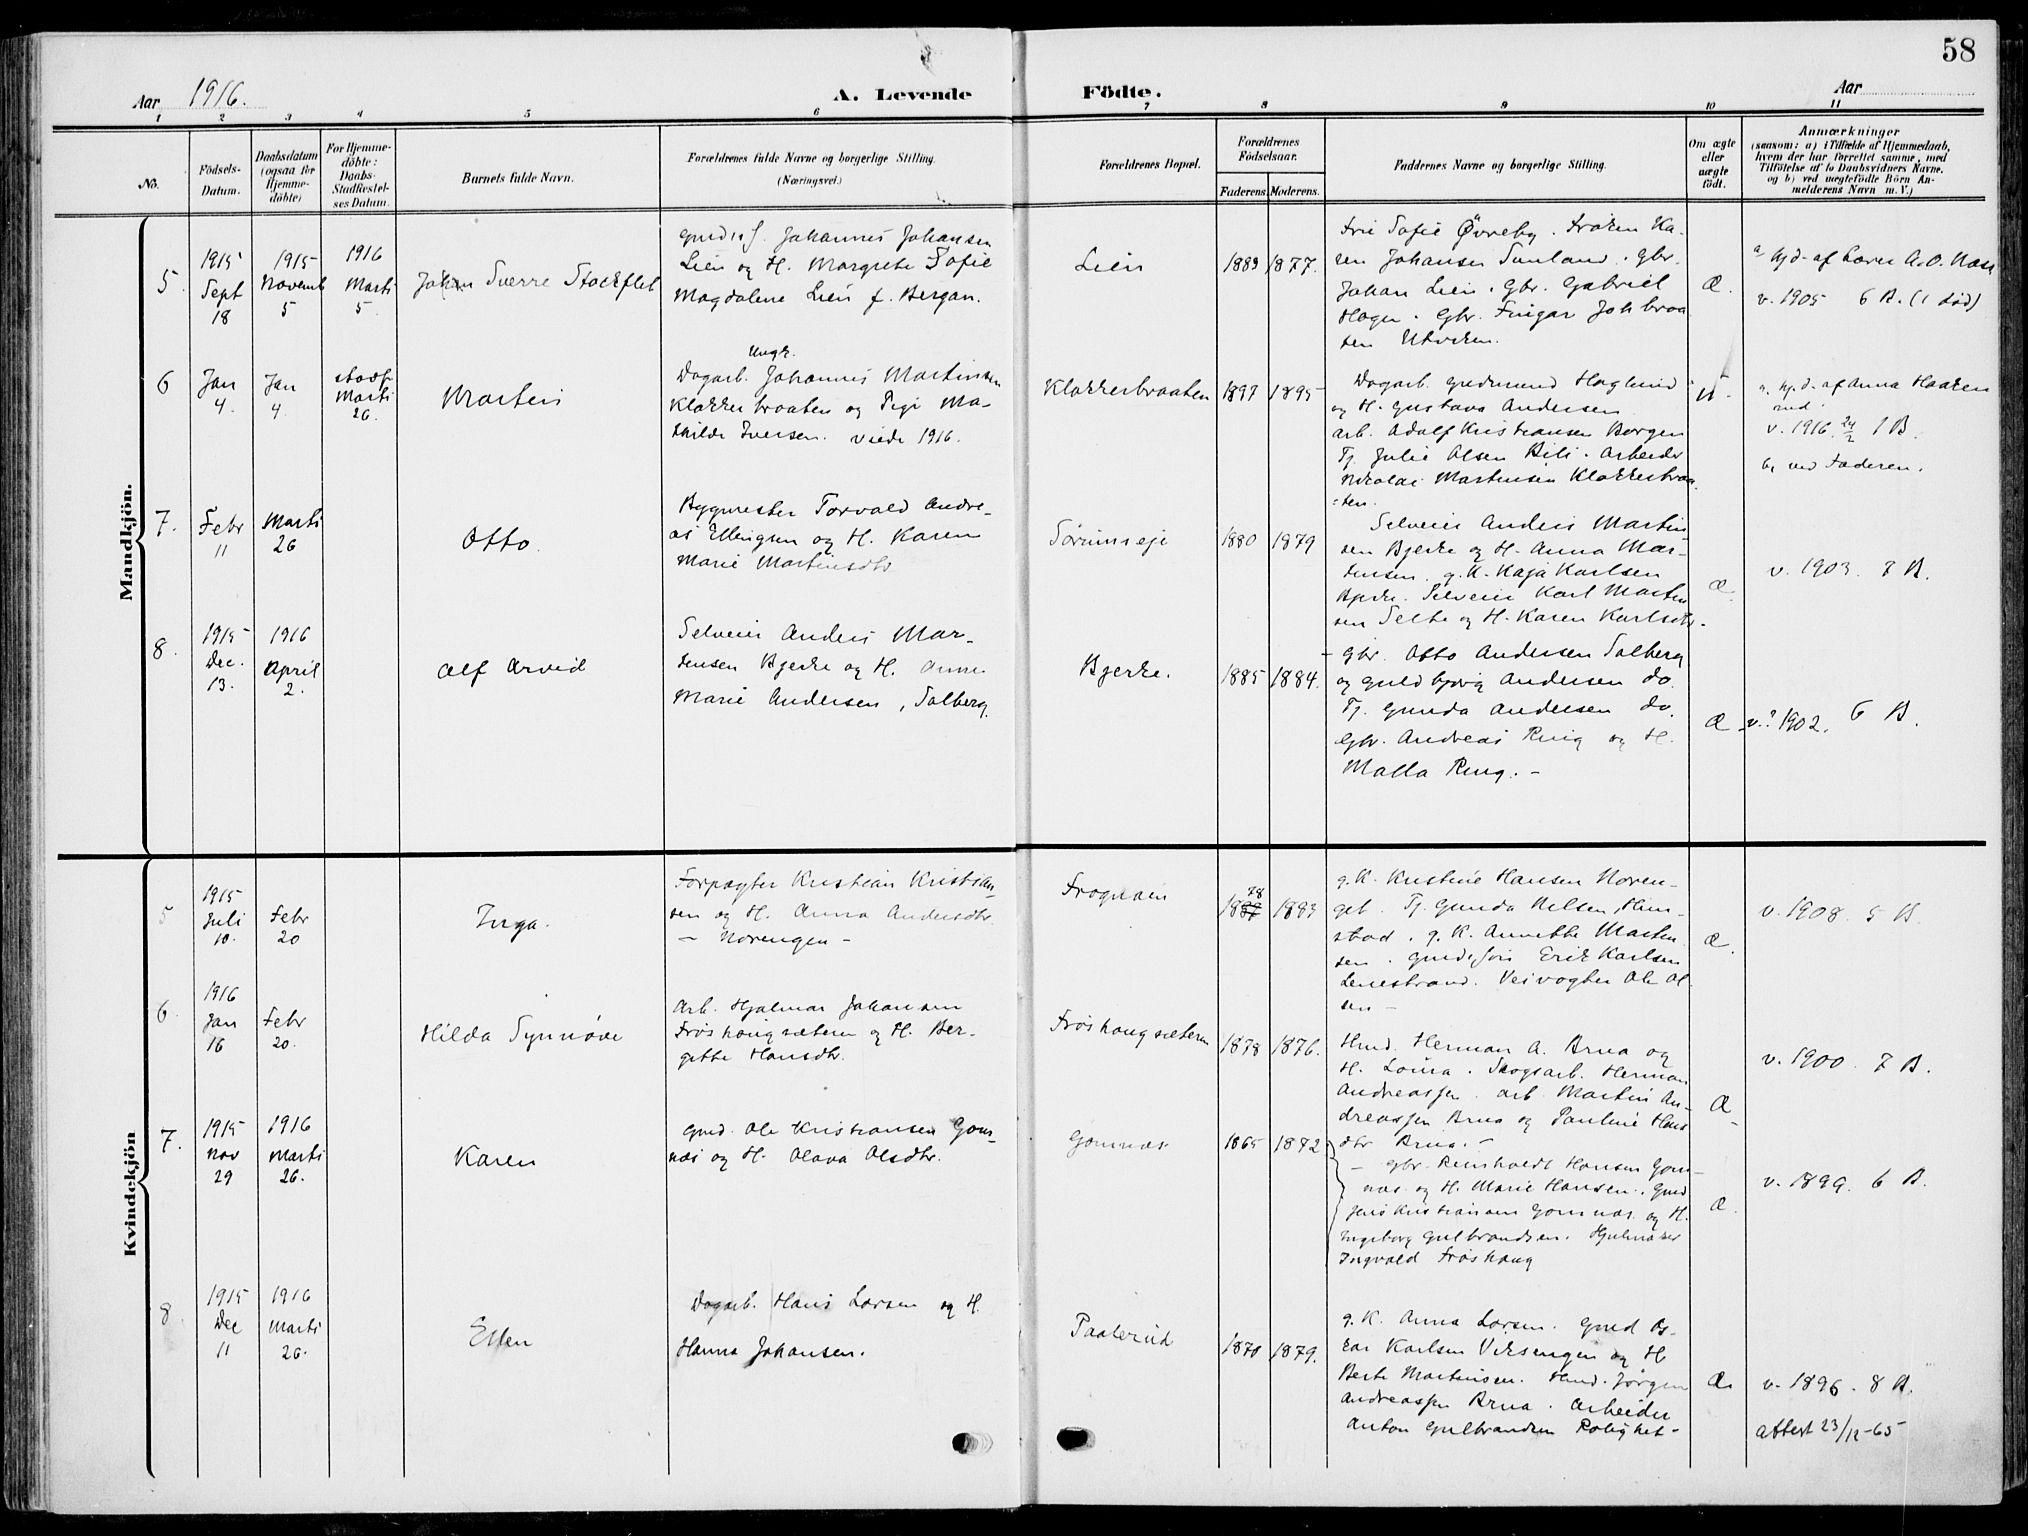 58
Aar 1916.
A. Levende Födte.
Aar
1 2 3 4 5 6 7 8 9 10 11
No.
Födsels-Datum.
Daabsdatum (ogsaa for Hjemme-döbte)
For Hjemme-döbte: Daabs-Stadfæstel-ses Datum.
Barnets fulde Navn.
Forældrenes fulde Navne og borgerlige Stilling.
(Næringsvei.)
Forældrenes Bopæl.
Forældrenes Födselsaar.
Faderens. Moderens.
Faddernes Navne og borgerlige Stilling.
Om ægte eller uægte födt.
Anmærkninger
(saasom: a) i Tilfælde af Hjemmedaab, hvem der har forrettet samme, med Tilföielse af to Daabsvidners Navne. og b) ved uægtefödte Börn An-melderens Navn m. V.)
Mandkjön.
5.
1915 Sept 18
1915 Novemb 5
1916 Marti 5.
Johan Sverre Stockflet
Johannes Johansen
Lien og H. Margrete Sofie
Magdalene Lien f. Bergan.
Lien
1883 1877.
Frk Sofie Övreby. Fröken Ka-
ren Johansen Sunland. Gbr.
Johan Lien. Gbr. Gabriel
Hagen. Gbr.
Æ.
a hjd. af Lærer A. O. Næss
v. 1905 6 B. (1 död)
6
Jan 4.
Jan 4.
stadf. Marti 26.
Marten
Ungk.
Dagarb. Johannes Martinsen
Klokkerbraaten og Pige Ma-
thilde Iversen. viede 1916.
Klokkerbraaten
1897 1895
Dagarb. Gudmund Haglund
og H. Gustava Andersen
arb. Adolf Kristiansen Borgen
Tj. Julie Olsen Bili. Arbeider
Nikolai Martinsen Klokkerbraa-
ten.
U.
a. hj. d. af Anna Haaken
rud.
v. 1916. 24/2 1 B.
b, ved Faderen.
7.
Febr 11
Marti 26
Otto.
Bygmester Torvald Andre-
as Ellingsen og H. Karen
Marie Martinsdtr
Sörumseje
1880 1879
Selveier Anders Martin
sen Bjerke og H. Anna Mar-
tensen. g. K. Kaja Karlsen
Bjerke. Selveier Karl Marten
sen Sætre og H. Karen Karlsdtr.
Æ.
v. 1903. 7 B.
8.
1915 Dec. 13.
1916 April 2.
Alf Arvid
Selveier Anders Mar-
tensen Bjerke og H. Anne
Marie Andersen, Solberg.
Bjerke.
1885 1884.
Gbr. Otto Andersen Solberg
og Guldbjörg Andersen do.
Tj. Gunda Andersen do.
Gbr. Andreas Ring og H.
Malla Ring. -
Æ
v.? 1902. 6 B.
Kvindekjön
5
1915 Juli 10.
Febr 20
Inga.
Forpagter Kristian Kristian
sen og H. Anna Andersdtr.
- Norengen -
Frognæn
78
1887 1883
g. K. Kristine Hansen Noren-
get. Tj. Gunda Nilsen, Him-
stad. g. K. Annette Marten
sen. Erik Karlsen
Lenestrand. Veivogter Ole Ol-
sen -
Æ.
v. 1908. 5 B.
6.
1916 Jan 16
Febr 20.
Hilda Synnöve
Arb. Hjalmar Johansen
Fröshaugsæteren og H. Ber-
gitte Hansdtr.
Fröshaugsæteren
1878 1876.
Hmd. Herman A. Brua og
H. Lovisa. Skogsarb. Herman
Andreassen. arb. Martin An-
dreassen Brua og Pauline Hans
dtr Brua. -
Æ
v. 1900. 7 B.
7.
1915 Nov 29
1916 Marti 26.
Karen
Gmd. Ole Kristiansen Gom-
næs og H. Olava Olsdtr.
Gomnæs
1865 1882
- Gbr. Reinholdt Hansen Gom-
næs. og H. Marie Hansen. Gmd
Jens Kristiansen Gomnæs. og H.
Ingeborg Gulbrandsen.
Ingvald Fröshaug
Æ.
v. 1899. 6 B.
8
1915 Dec 11
1916 Marti 26.
Ellen
Dagarb. Hans Larsen og H.
Hanna Johansen.
Paalerud
1870 1879.
g. K. Anna Larsen. Gmd Os-
kar Karlsen Viksengen og H
Berte Martinsen. Hmd. Jörgen
Andreassen Brua. Arbeider
Anton Gulbrandsen Rolighet -
Æ.
v. 1896. 8 B.
Attest 23/12-65